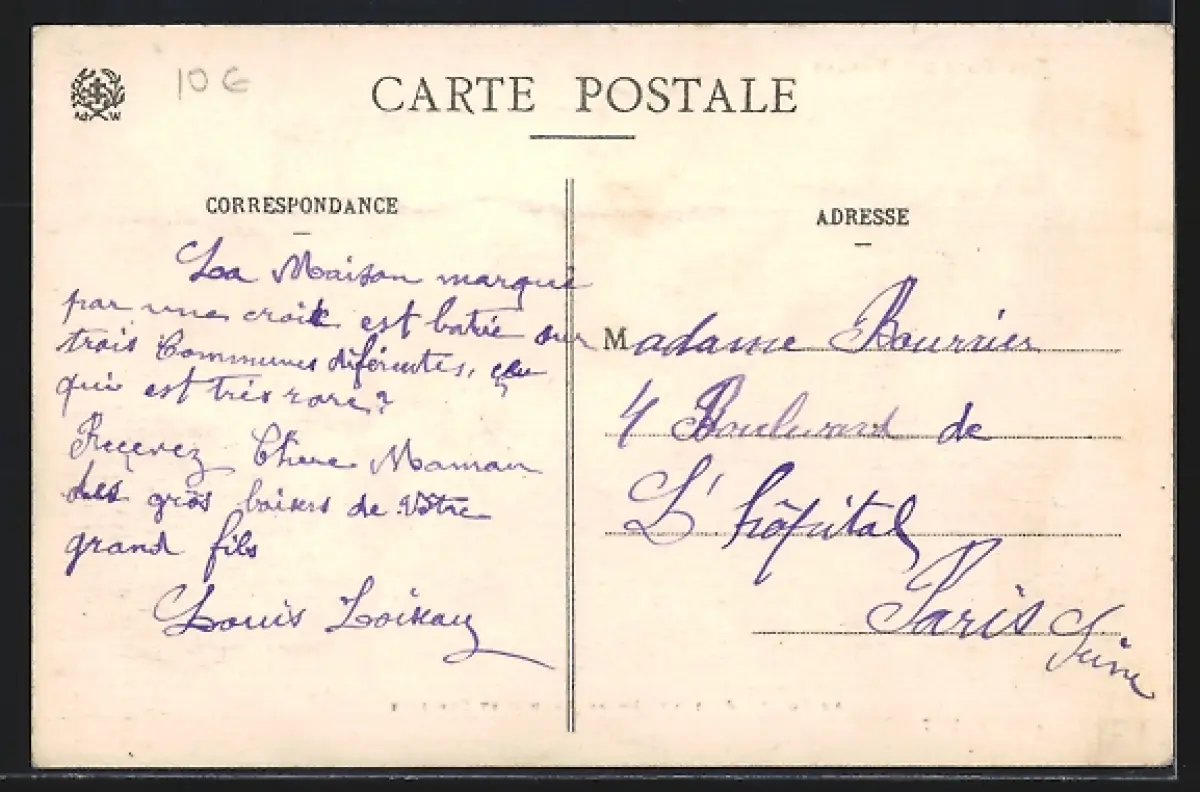 10 €
CARTE POSTALE
CORRESPONDANCE
La Maison marqué
par une croix est batie sur
trois Communes diférentes, ce
qui est très rare?
Recevez Chere Maman
des gros baisers de Votre
grand fils
Louis Loiseau
ADRESSE
Madame Bourrier
4 Boulevard de
L'hôpital
Paris Seine